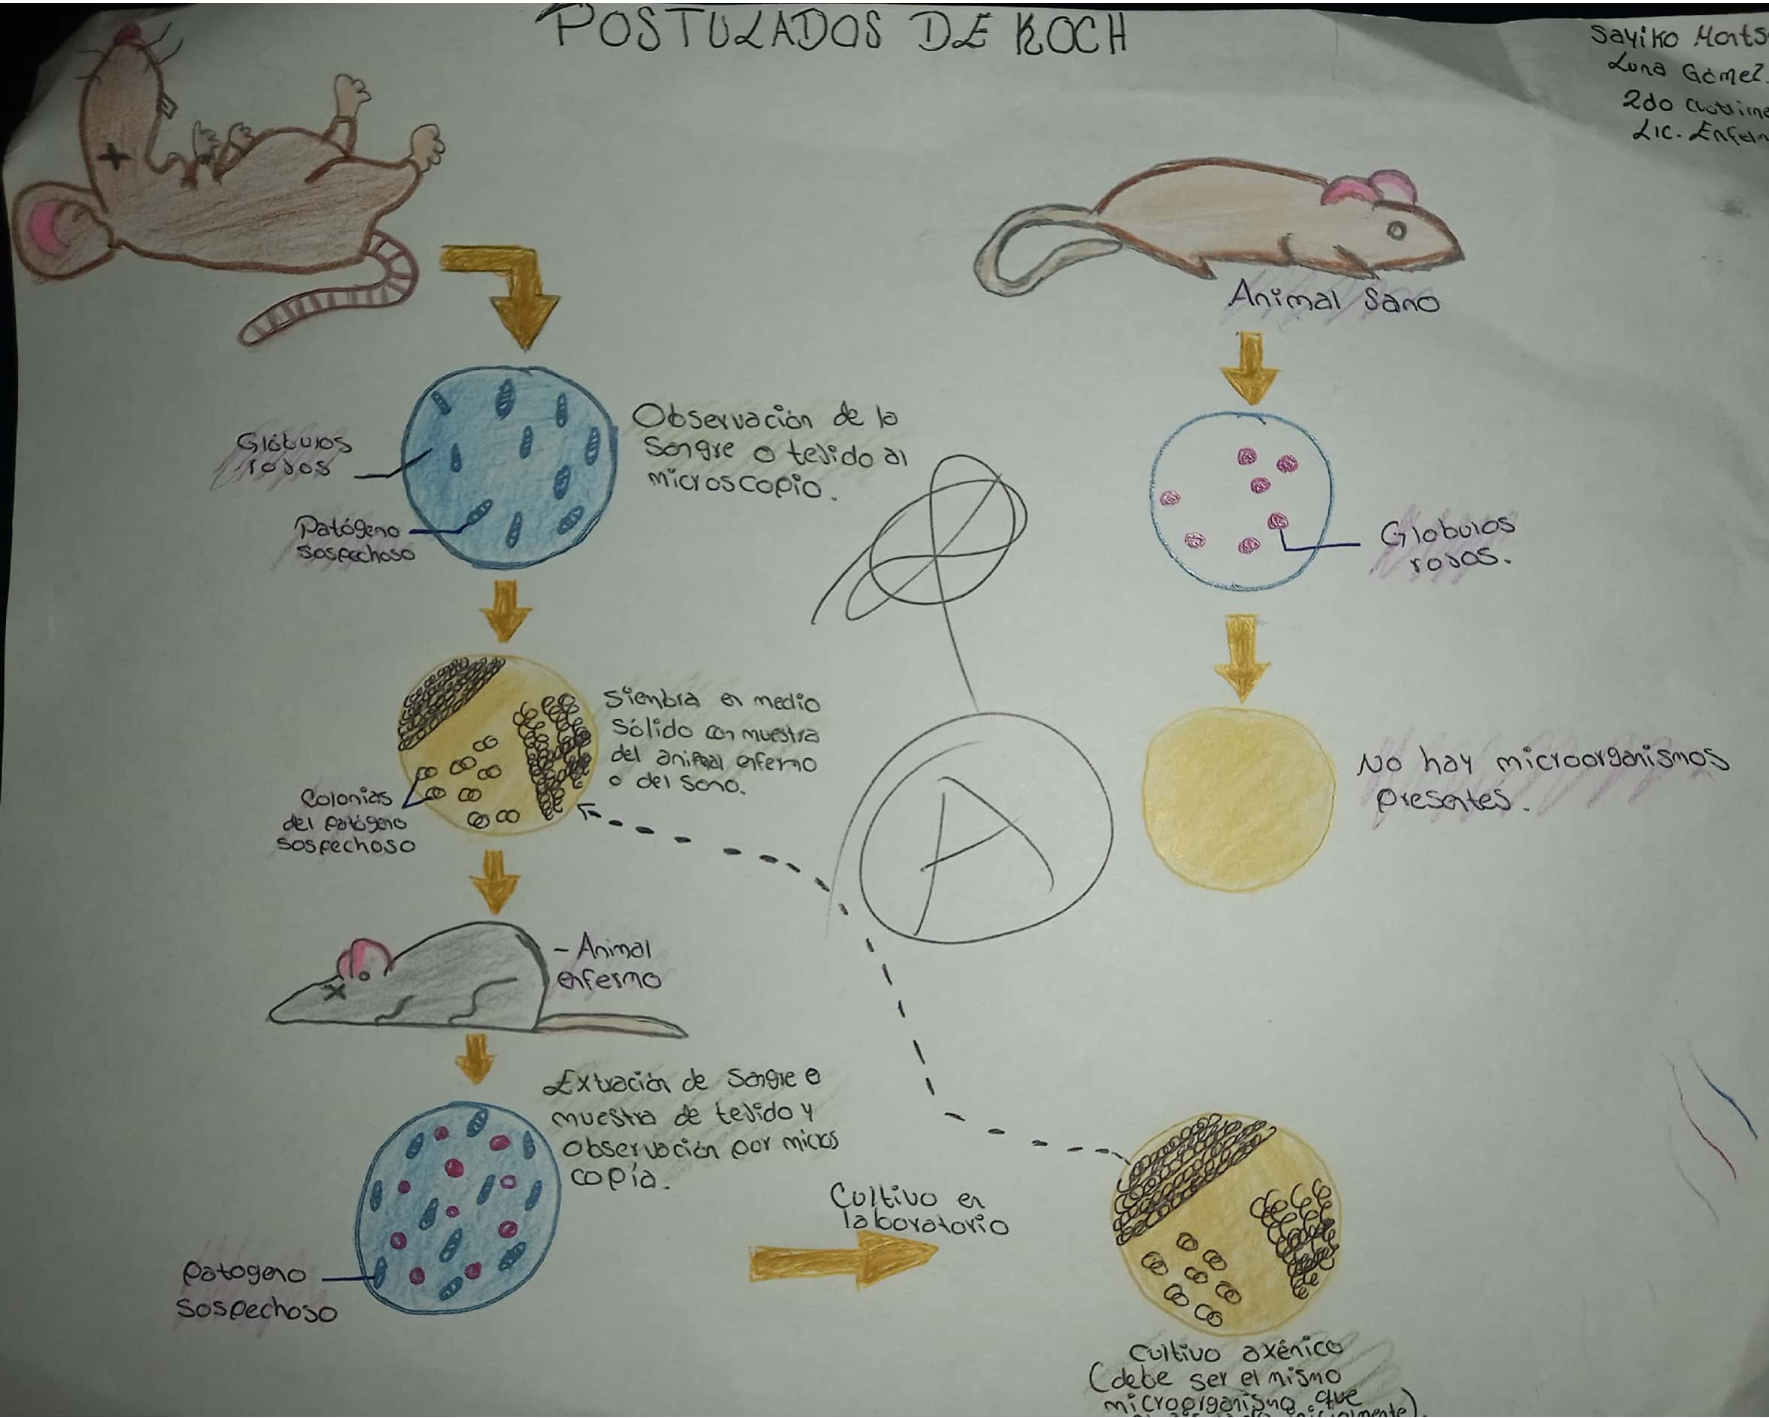 POSTULADOS DE KOCH
Sayiko
Luna Gómez.
2do
Lic.
Animal Sano
Glóbulos
rojos
Patógeno
sospechoso
Observación de la
Sangre o tejido al
microscopio.
Globulos
rojos.
Siembra en medio
Sólido con muestra
del animal enfermo
o del Sano.
Colonias
del patógeno
sospechoso
No hay microorganismos
presentes.
A
- Animal
enfermo
Extración de Sangre o
muestra de tejido y
Observación por micros
copía.
Patogeno
sospechoso
Cultivo en
laboratorio
Cultivo axénico
(debe ser el mismo
microorganismo que